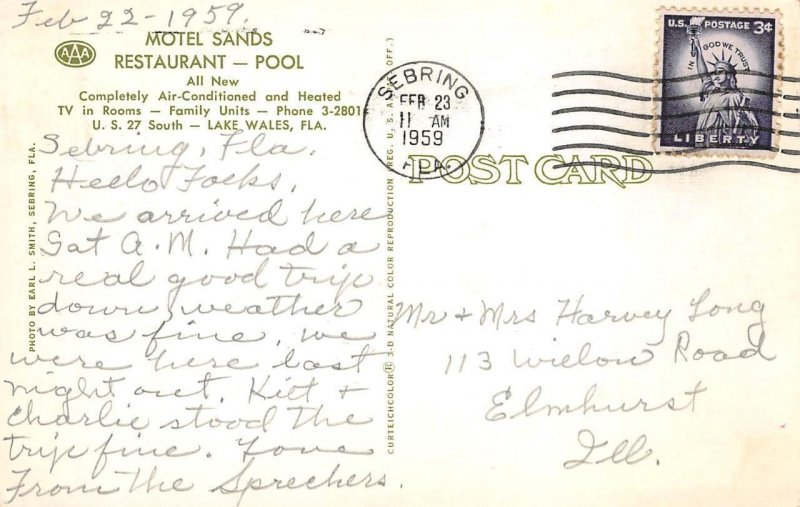 Feb 22-1959.
AAA
MOTEL SANDS
RESTAURANT — POOL
All New
Completely Air-Conditioned and Heated
TV in Rooms — Family Units — Phone 3-2801
U. S. 27 South — LAKE WALES, FLA.
Sebring, Fla.
Hello Folks,
We arrived here
Sat A.M. Had a
real good trip
down, weather
was fine, we
were here last
night out. Kitt +
Charlie stood the
trip fine. Love
From the Sprechers.
PHOTO BY EARL L. SMITH, SEBRING, FLA.
CURTEICHCOLOR® 3-D NATURAL COLOR REPRODUCTION (REG. U. S. A. PAT. OFF.)
SEBRING
FEB 23
11 AM
1959
FLA.
U.S. POSTAGE 3¢
IN GOD WE TRUST
LIBERTY
POST CARD
Mr + Mrs Harvey Long
113 Willow Road
Elmhurst
Ill.